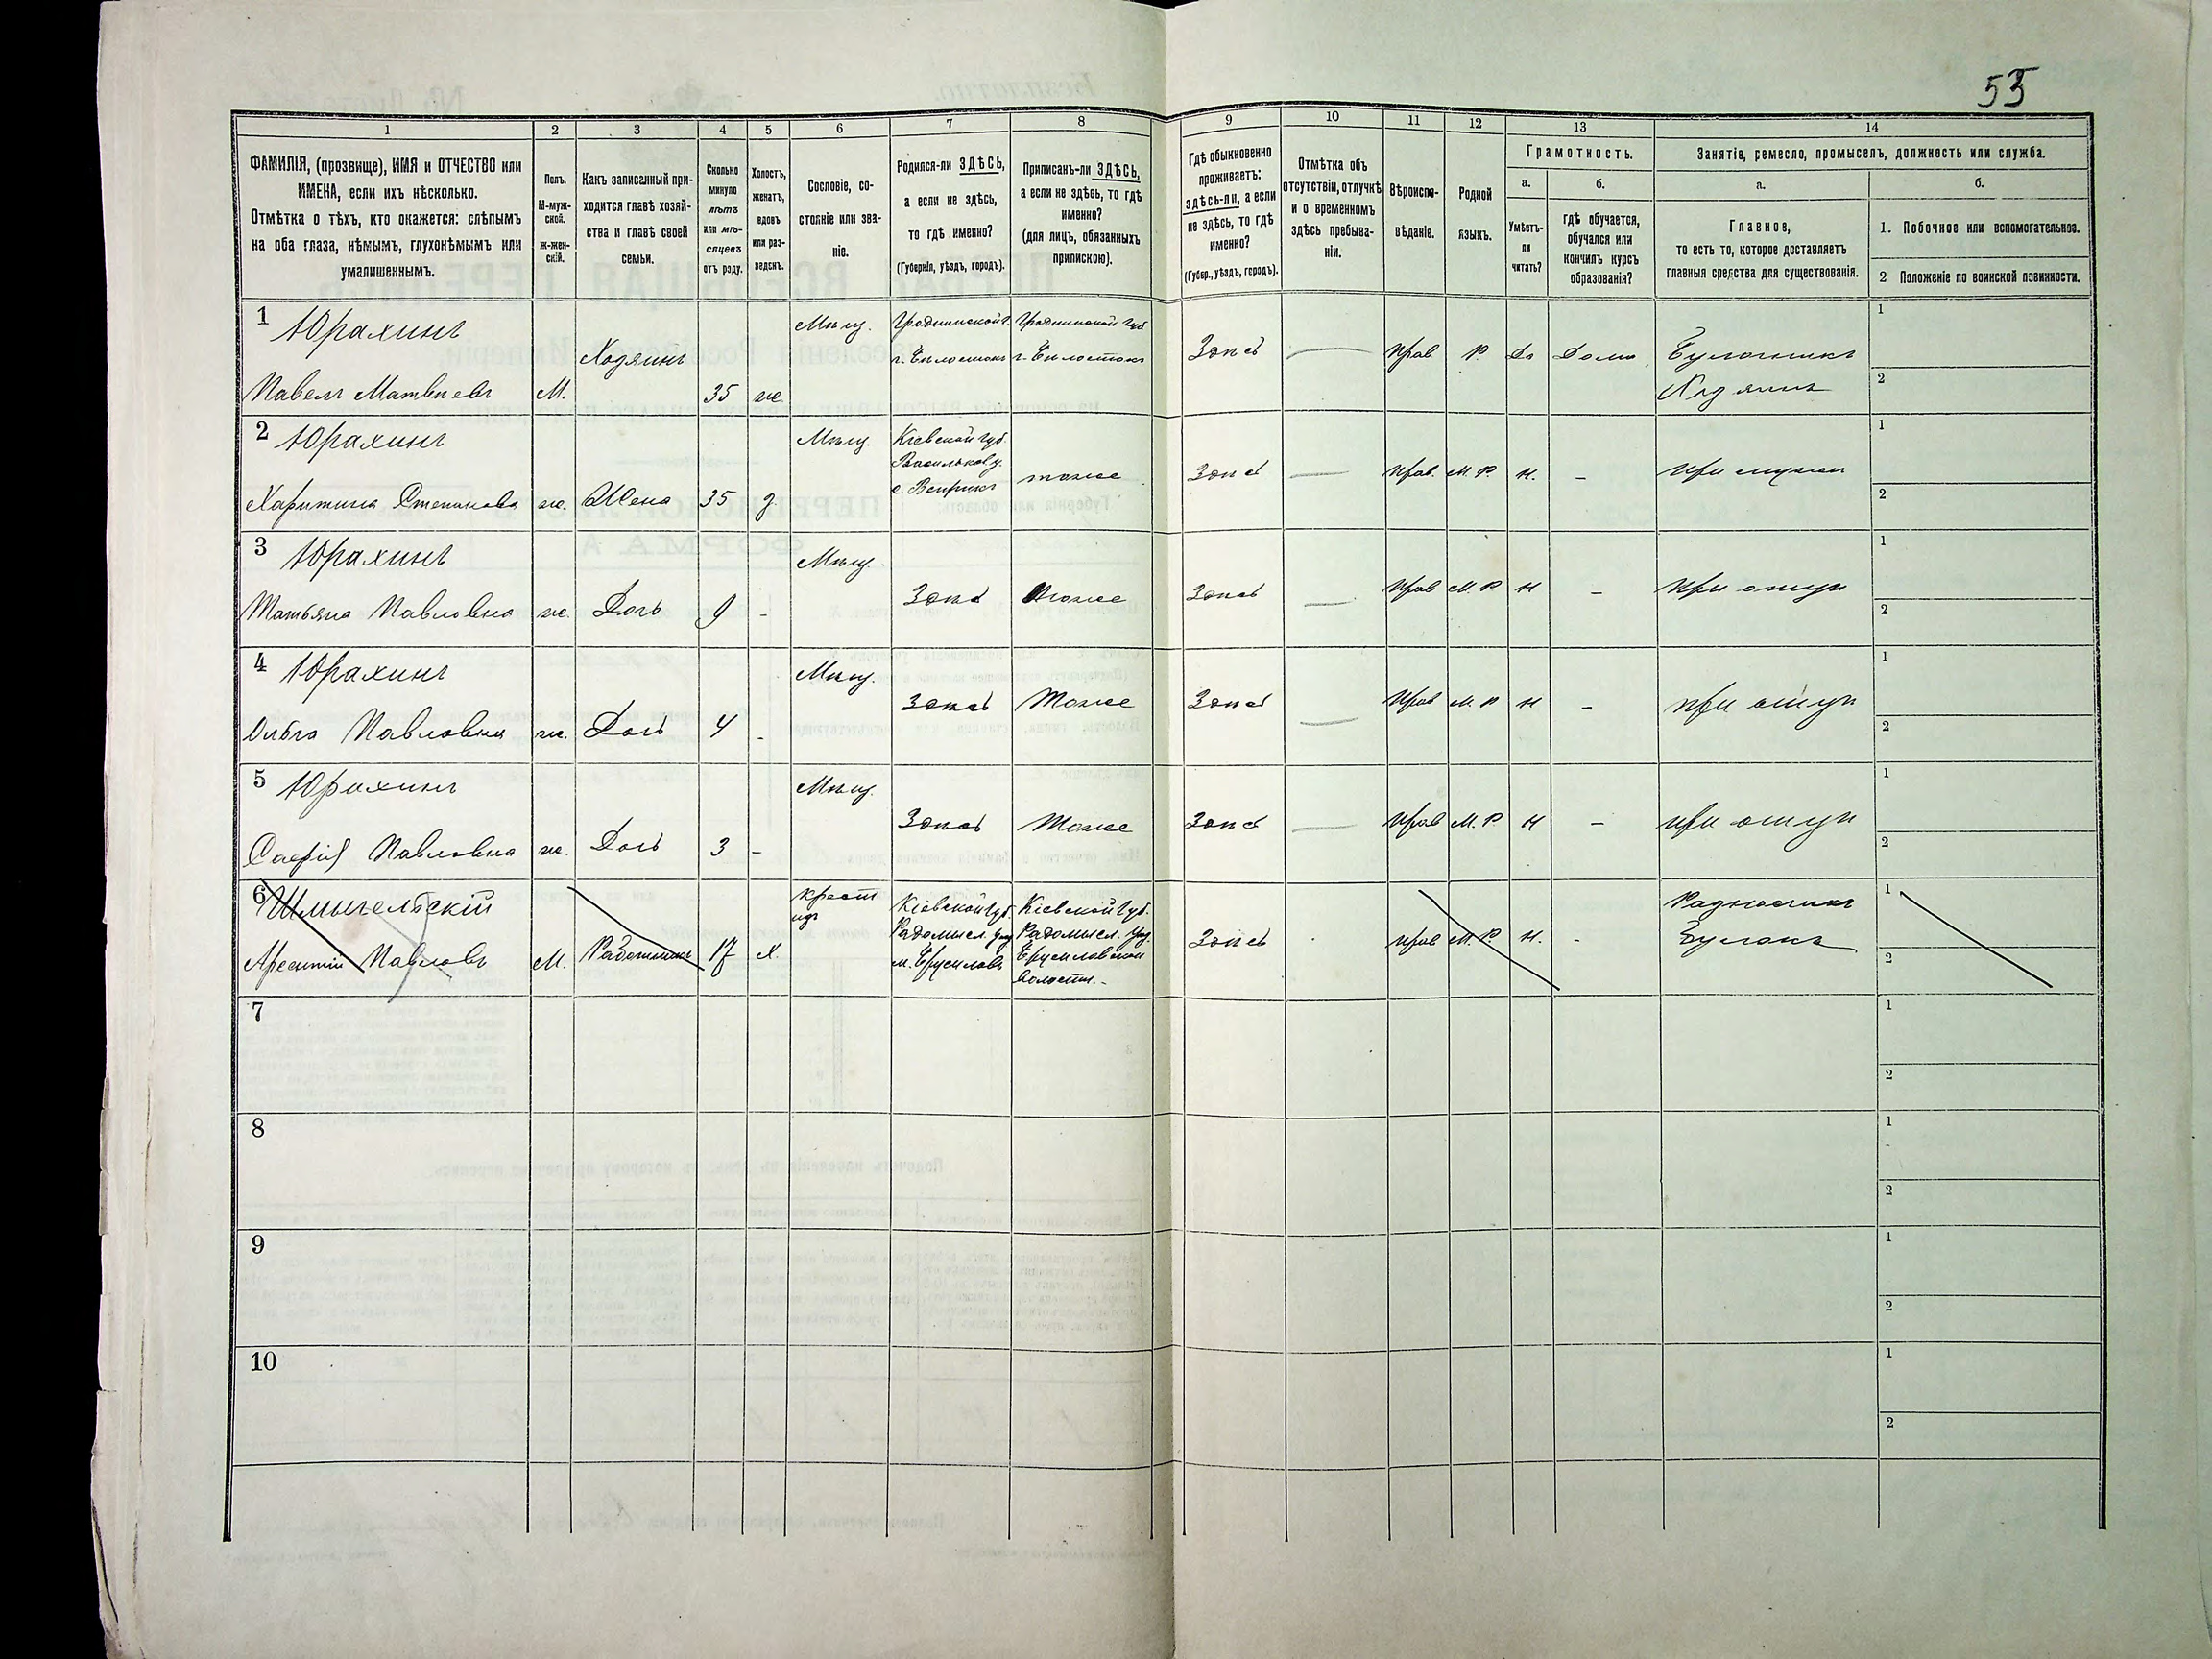 53
1 2 3 4 5 6 7 8 9 10 11 12 13 14
ФАМИЛІЯ, (прозвище), ИМЯ и ОТЧЕСТВО или
ИМЕНА, если ихъ нѣсколько.
Отмѣтка о тѣхъ, кто окажется: слѣпымъ
на оба глаза, нѣмымъ, глухонѣмымъ или
умалишеннымъ.
Полъ.
М-муж-
ской.
ж-жен-
скій.
Какъ записанный при-
ходится главѣ хозяй-
ства и главѣ своей
семьи.
Сколько
минуло
лѣтъ
или мѣ-
сяцевъ
отъ роду.
Холостъ,
женатъ,
вдовъ
или раз-
веденъ.
Сословіе, со-
стояніе или зва-
ніе.
Родился-ли ЗДѢСЬ,
а если не здѣсь,
то гдѣ именно?
(Губернія, уѣздъ, городъ).
Приписанъ-ли ЗДѢСЬ,
а если не здѣсь, то гдѣ
именно?
(для лицъ, обязанныхъ
припискою).
Гдѣ обыкновенно
проживаетъ:
здѣсь-ли, а если
не здѣсь, то гдѣ
именно?
(Губер., уѣздъ, городъ).
Отмѣтка объ
отсутствіи, отлучкѣ
и о временномъ
здѣсь пребыва-
ніи.
Вѣроиспо-
вѣданіе.
Родной
языкъ.
Грамотность.
а. б.
Умѣетъ-
ли
читать?
Гдѣ обучается,
обучался или
кончилъ курсъ
образованія?
Занятіе, ремесло, промыселъ, должность или служба.
а. б.
Главное,
то есть то, которое доставляетъ
главныя средства для существованія.
1. Побочное или вспомогательное.
2 Положеніе по воинской повинности.
1 Юрахинъ Мѣщ. Гродненской г. Гродненской губ 1
Хозяинъ г. Бѣлостокъ г. Бѣлостокъ Здѣсь — прав Р. Да Дома Булочникъ
Павелъ Матвѣевъ М. 35 ж Хозяинъ 2
2 Юрахинъ Мѣщ. Кіевской губ. 1
Васильков у.
Харитина Степанова ж. Жена 35 з. с. Веприкъ тоже Здѣсь — прав. М. Р. Н. - при мужѣ 2
3 Юрахинъ Мѣщ. 1
Татьяна Павловна ж. Дочь 9 - Здѣсь Тоже Здѣсь — прав М. Р Н - при отцѣ 2
4 Юрахинъ Мѣщ. 1
Ольга Павловна ж. Дочь 4 - Здѣсь Тоже Здѣсь — прав М. Р Н - при отцѣ 2
5 Юрахинъ Мѣщ. 1
Софія Павловна ж. Дочь 3 - Здѣсь Тоже Здѣсь — прав М. Р Н - при отцѣ 2
6 крест Кіевской губ. Кіевской Губ. 1
Радомысл. уѣзд Радомысл. уѣз. Здѣсь прав М. Р. Н. -
Павловъ М. Работникъ 17 Х. м. Брусиловъ Брусиловской 2
волости.-
7 1
2
8 1
2
9 1
2
10 1
2